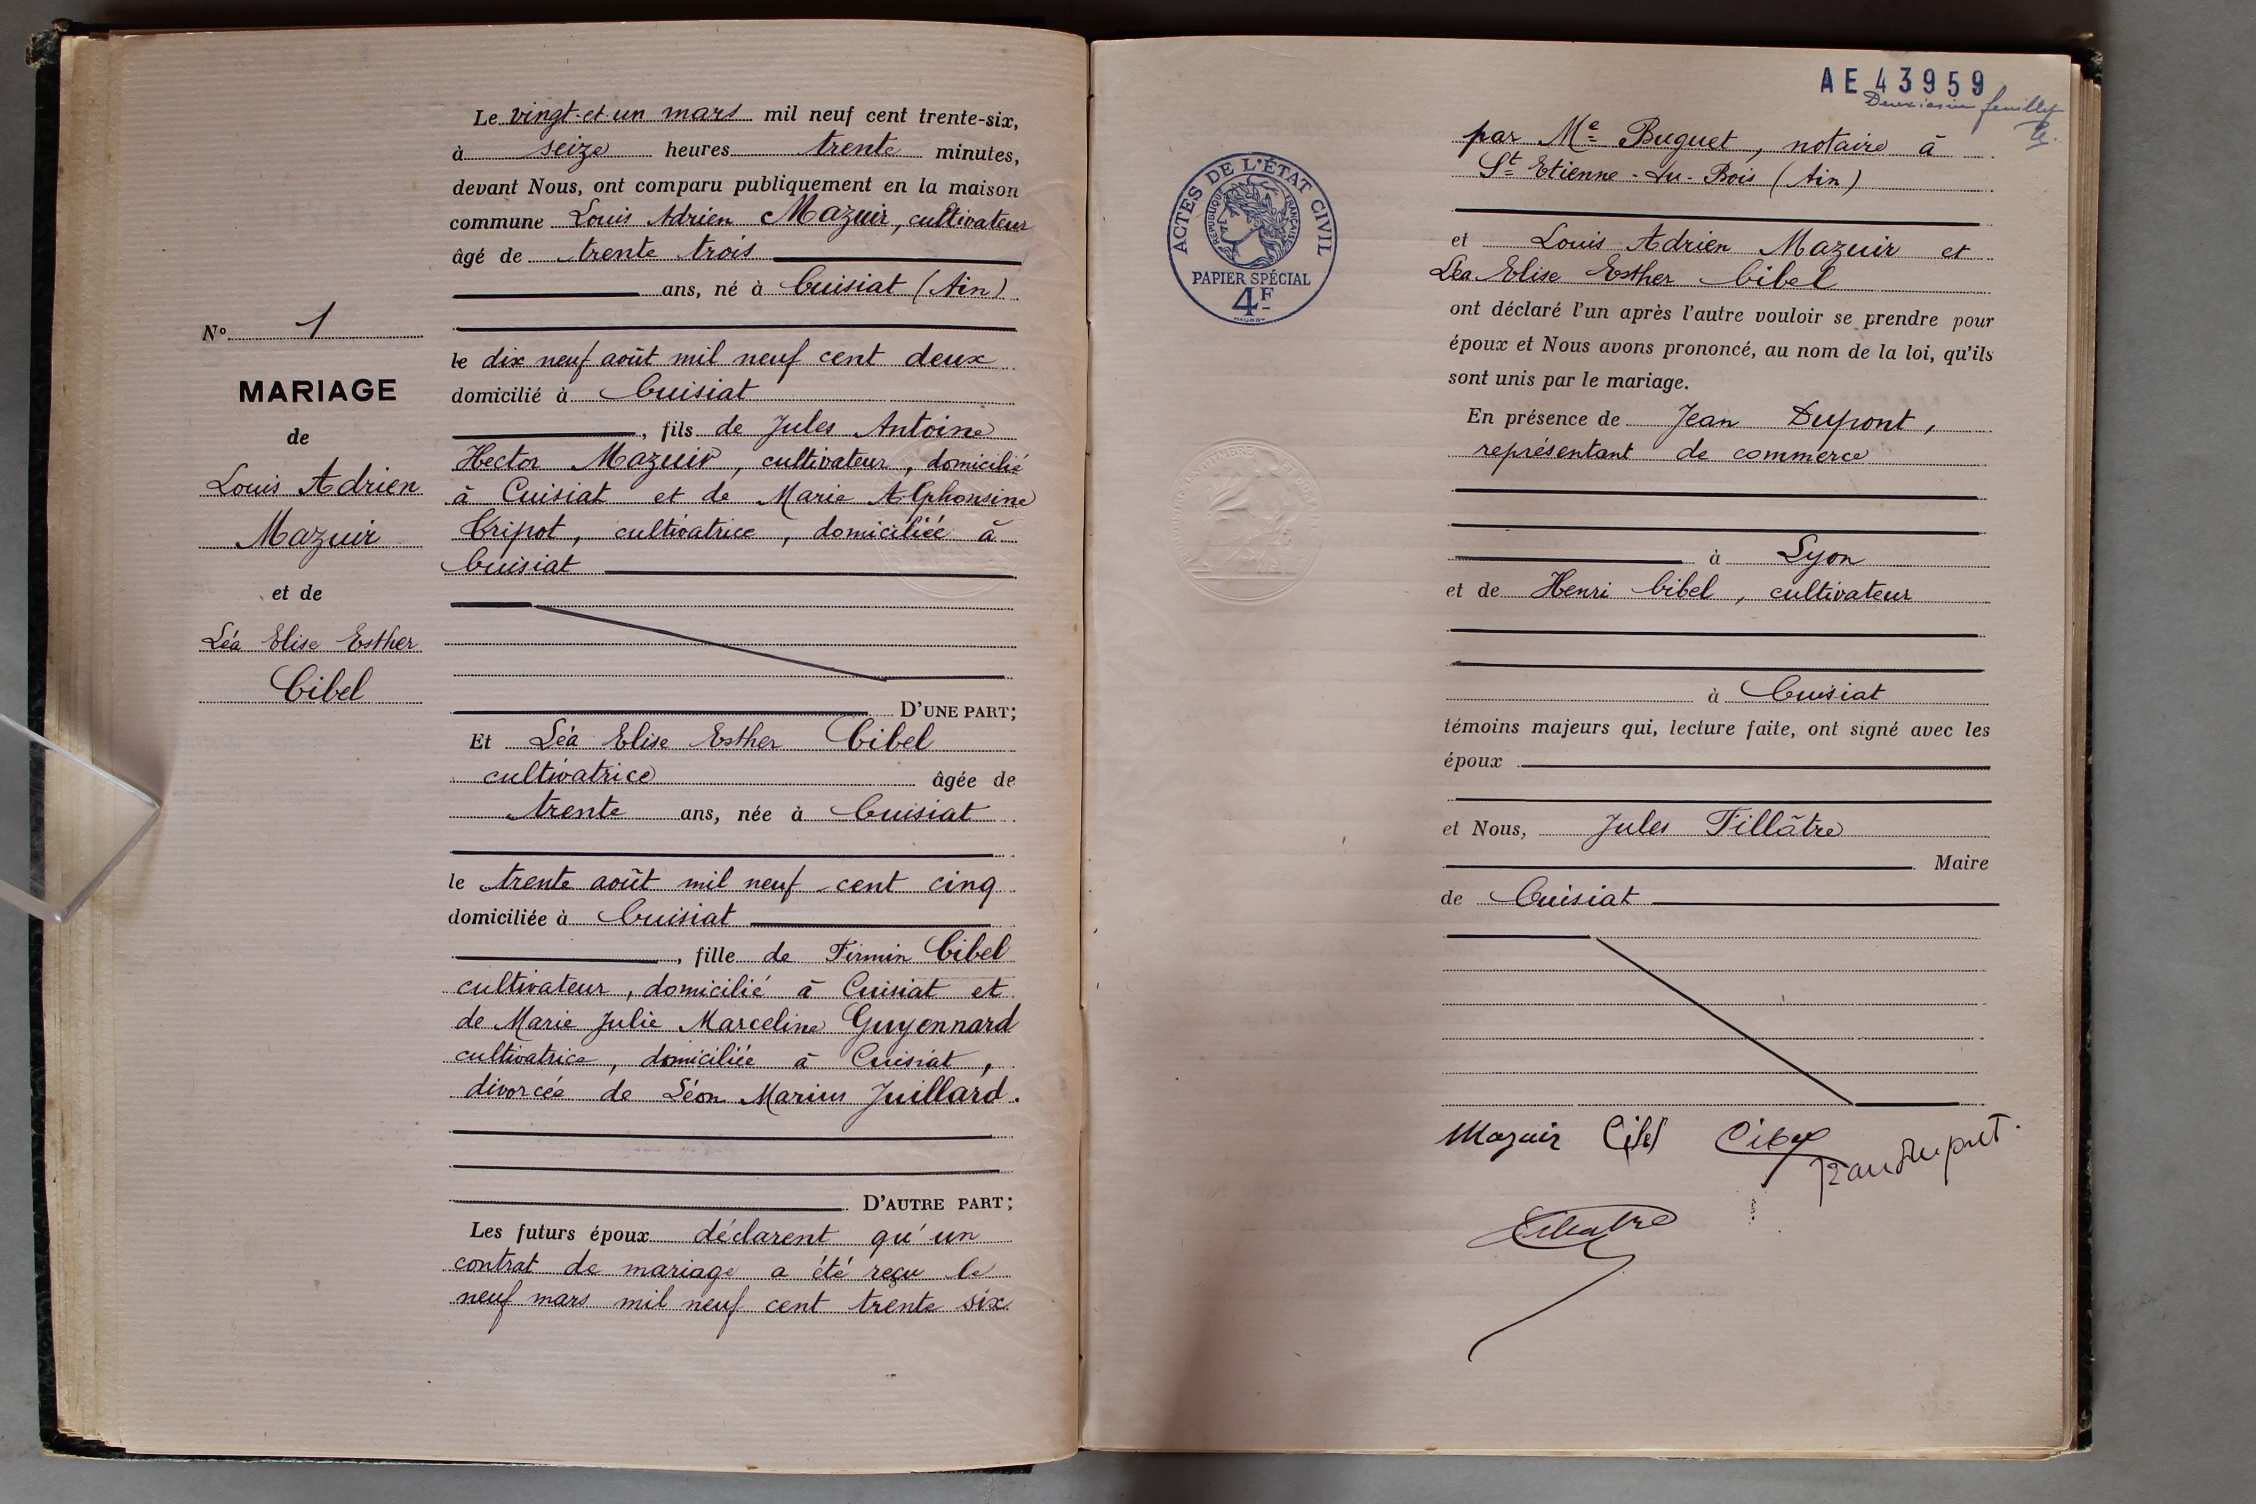 Le vingt-et-un mars mil neuf cent trente-six,
à seize heures trente minutes,
devant Nous, ont comparu publiquement en la maison
commune Louis Adrien Mazuir, cultivateur
âgé de trente trois
ans, né à Cuisiat (Ain)
le dix neuf août mil neuf cent deux
domicilié à Cuisiat
, fils de Jules Antoine
Hector Mazuir, cultivateur, domicilié
à Cuisiat et de Marie Alphonsine
Cripot, cultivatrice, domiciliée à
Cuisiat
D'UNE PART;
Et Léa Elise Esther Cibel
cultivatrice âgée de
trente ans, née à Cuisiat
le trente août mil neuf cent cinq
domiciliée à Cuisiat
, fille de Firmin Cibel
cultivateur, domicilié à Cuisiat et
de Marie Julie Marceline Guyennard
cultivatrice, domiciliée à Cuisiat,
divorcée de Léon Marius Juillard.
D'AUTRE PART;
Les futurs époux déclarent qu'un
contrat de mariage a été reçu le
neuf mars mil neuf cent trente six
N° 1
MARIAGE
de
Louis Adrien
Mazuir
et de
Léa Elise Esther
Cibel
AE 43959
Deuxième feuillet
ACTES DE L'ÉTAT CIVIL
RÉPUBLIQUE FRANÇAISE
PAPIER SPÉCIAL
4F
par Me Buguet, notaire à
St Etienne-du-Bois (Ain)
et Louis Adrien Mazuir et
Léa Elise Esther Cibel
ont déclaré l'un après l'autre vouloir se prendre pour
époux et Nous avons prononcé, au nom de la loi, qu'ils
sont unis par le mariage.
En présence de Jean Dupont,
représentant de commerce
à Lyon
et de Henri Cibel, cultivateur
à Cuisiat
témoins majeurs qui, lecture faite, ont signé avec les
époux
et Nous, Jules Tillâtre
Maire
de Cuisiat
Mazuir Cibel Cibel
Jean Dupont.